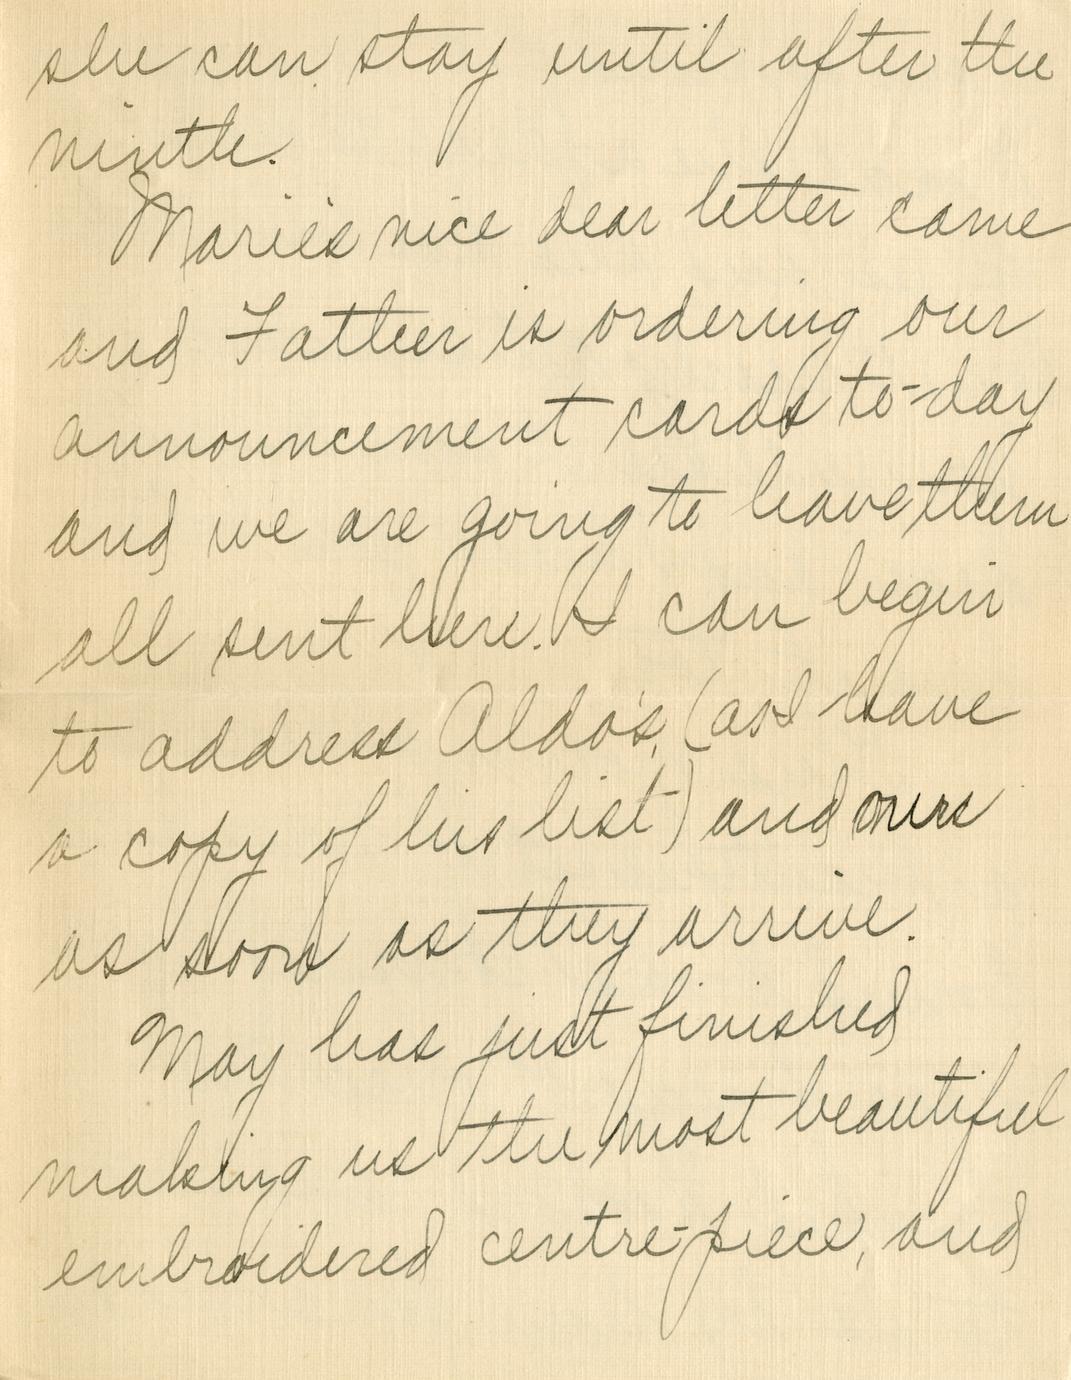 she can stay until after the
ninth.
Marie's nice dear letter came
and Father is ordering our
announcement cards to-day
and we are going to have them
all sent here. I can begin
to address Aldo's, (as I have
a copy of his list) and ours
as soon as they arrive.
May has just finished
making us the most beautiful
embroidered centre-piece, and